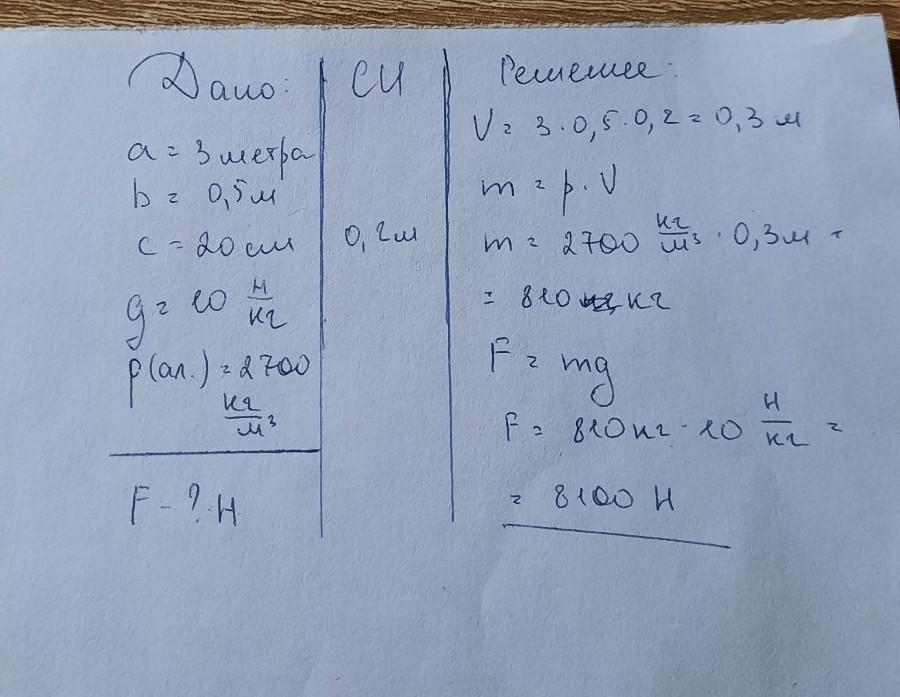 Дано:
a = 3 метра
b = 0,5м
c = 20 см
g = 10 Н/кг
p(ал.) = 2700
кг/м³
F - ? Н
СИ
0,2м
Решение:
V = 3 · 0,5 · 0,2 = 0,3 м
m = p · V
m = 2700 кг/м³ · 0,3м =
= 810 кг
F = mg
F = 810кг · 10 Н/кг =
= 8100 Н